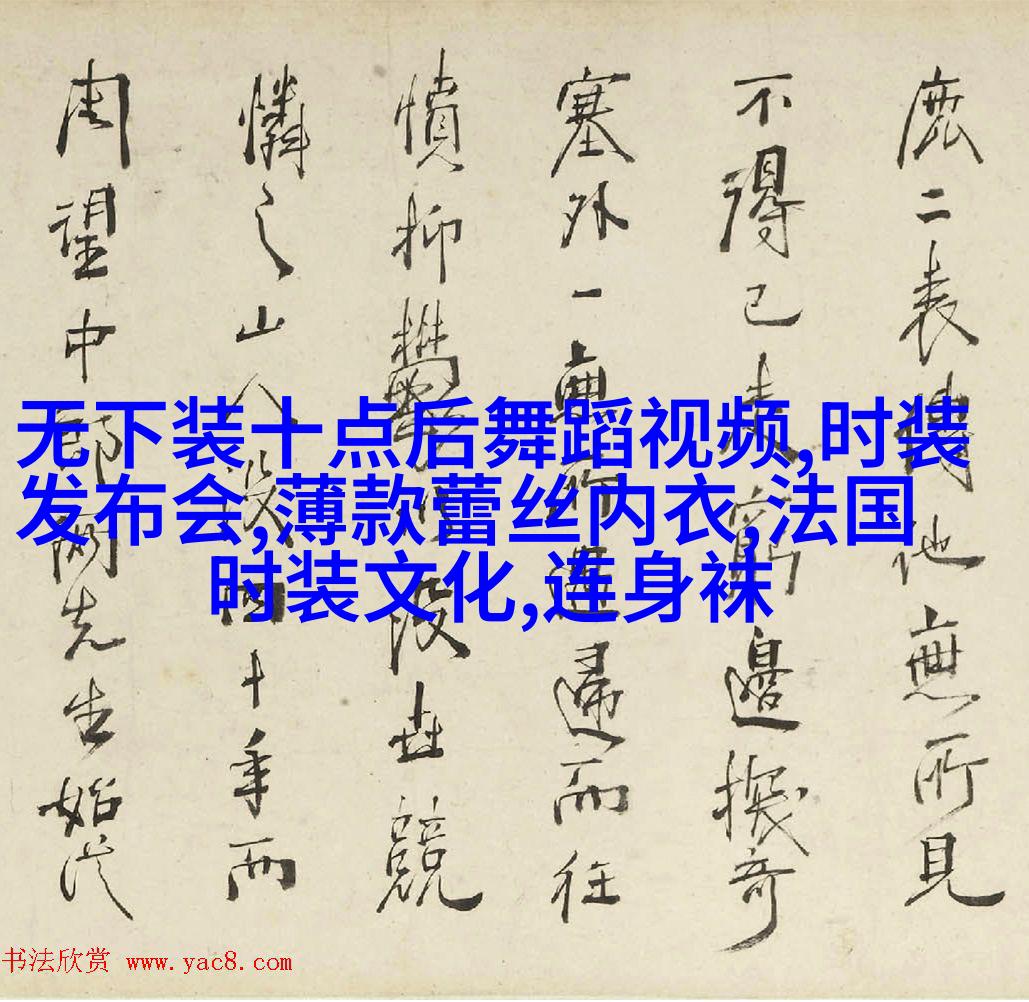 无下装十点后舞蹈视频,时装
发布会,薄款蕾丝内衣,法国
时装文化,连身袜
鹿二表他無所見
不得已走窮邊探奇
塞外一無所遇歸而往
憤抑鬱世競
憐之山人沒四十年而
周望中郎兩先生始
书法欣赏 www.yac8.com